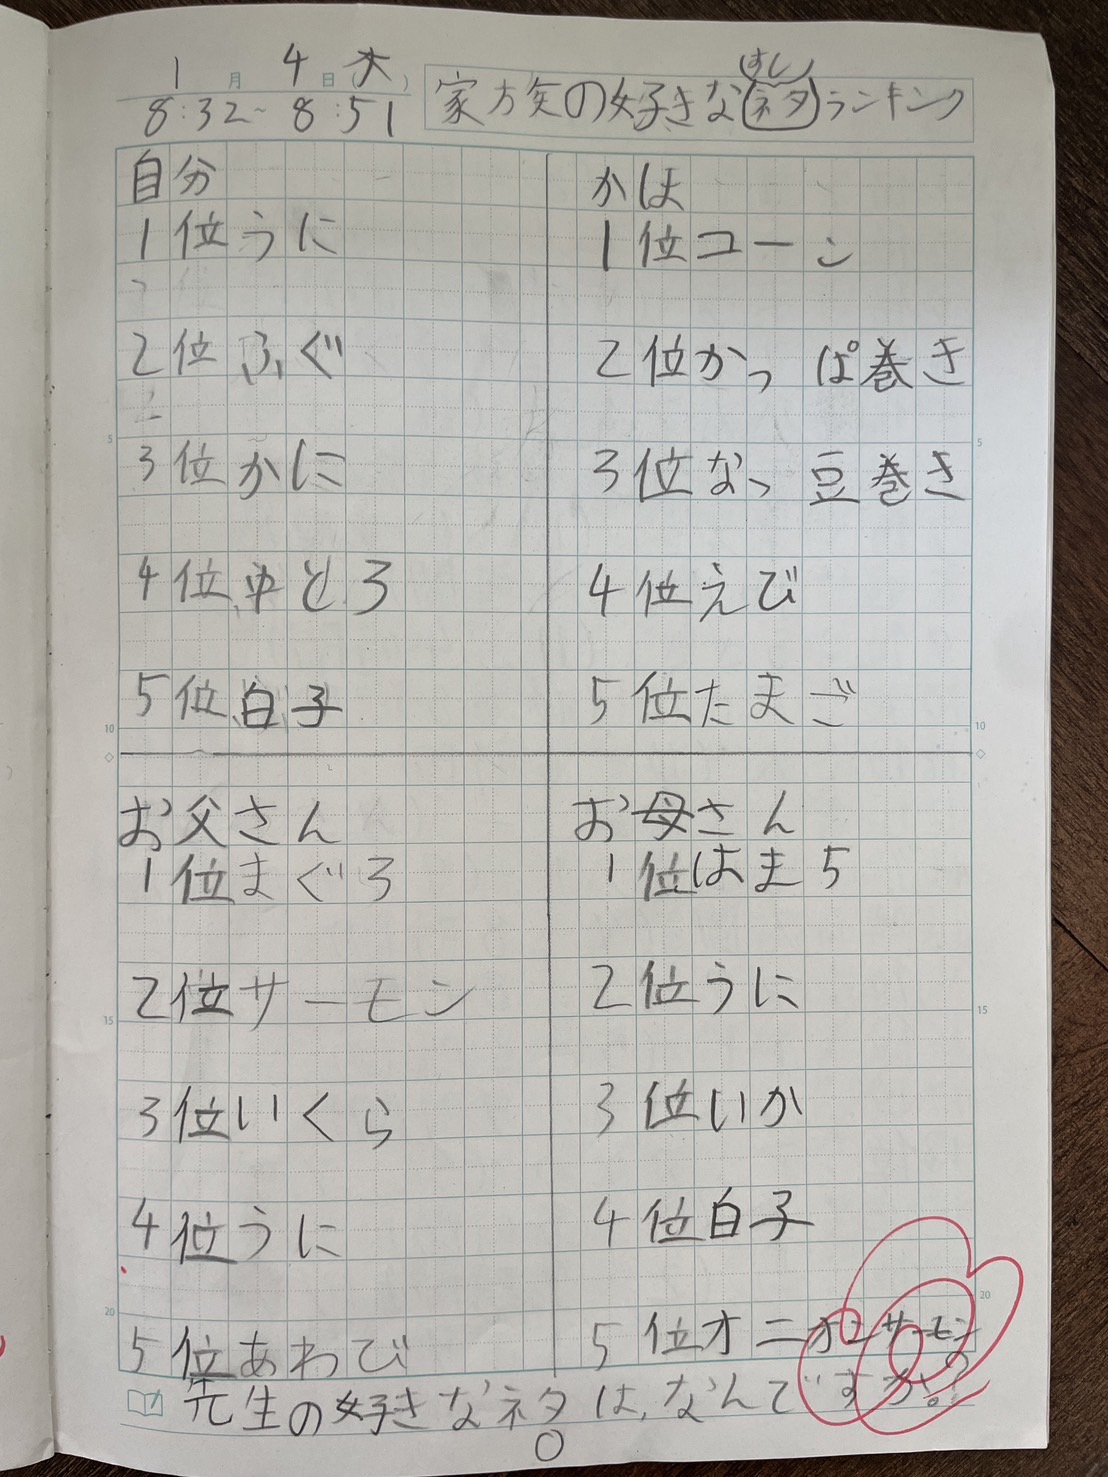 1月4日(木)
8:32~8:51
家族の好きな(ネタ)ランキング
すし
自分
1位うに
2位ふぐ
3位かに
4位中とろ
5位白子
かほ
1位コーン
2位かっぱ巻き
3位なっ豆巻き
4位えび
5位たまご
お父さん
1位まぐろ
2位サーモン
3位いくら
4位うに
5位あわび
お母さん
1位はまち
2位うに
3位いか
4位白子
5位オニオンサーモン
先生の好きなネタは、なんですか。?
5
10
15
20
5
10
15
20